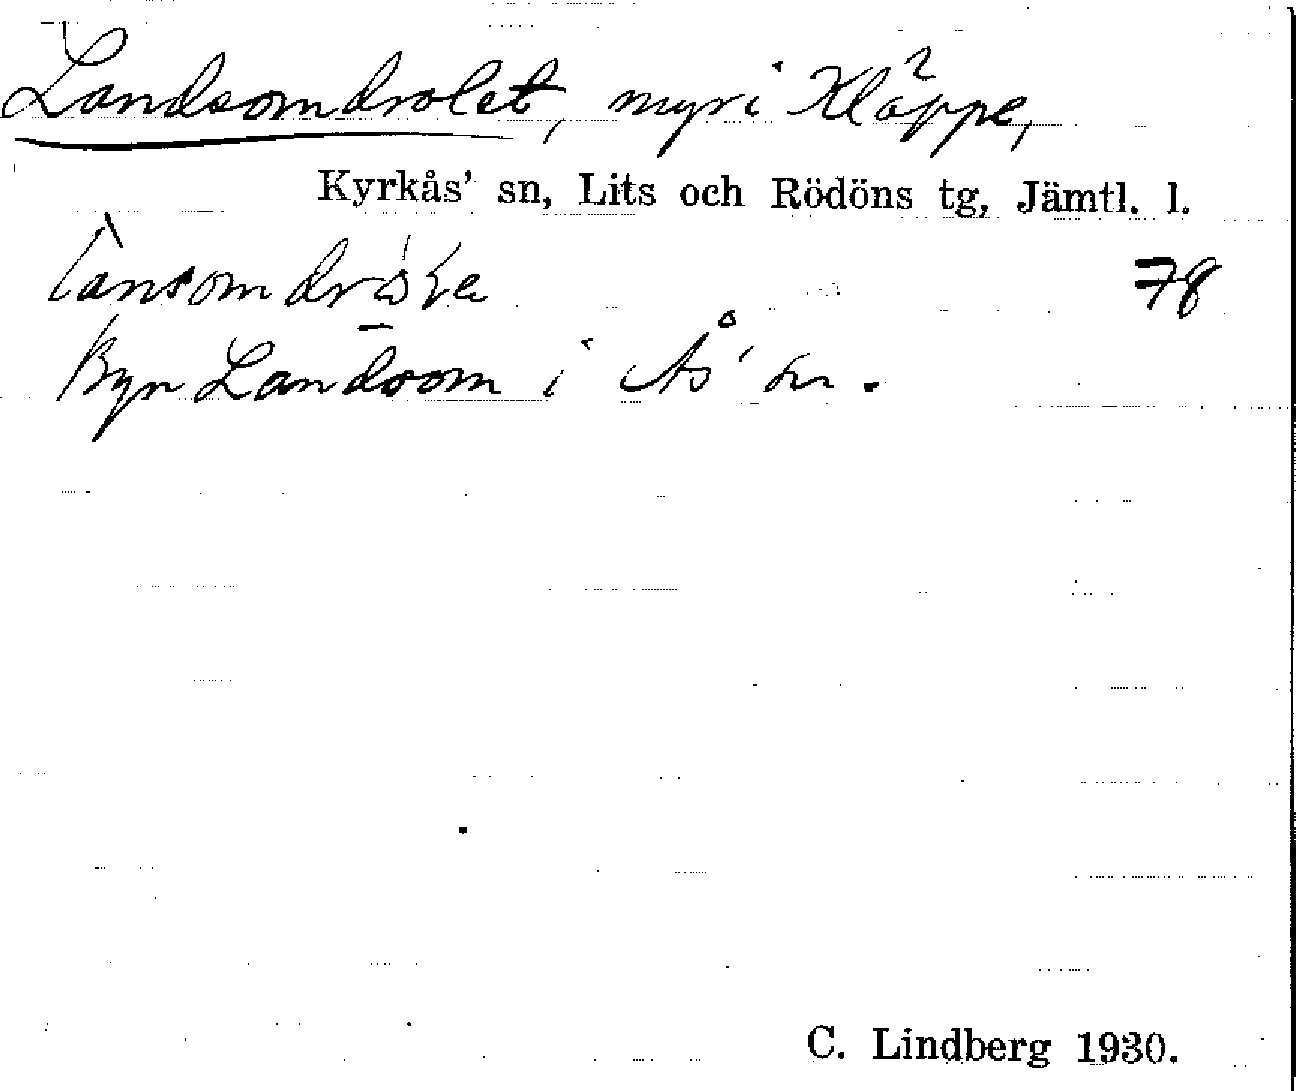 Landsomdrolet, myr i Kläppe,
Kyrkås' sn, Lits och Rödöns tg, Jämtl. l.
78
Byn Landsom i Ås' sn.
C. Lindberg 1930.